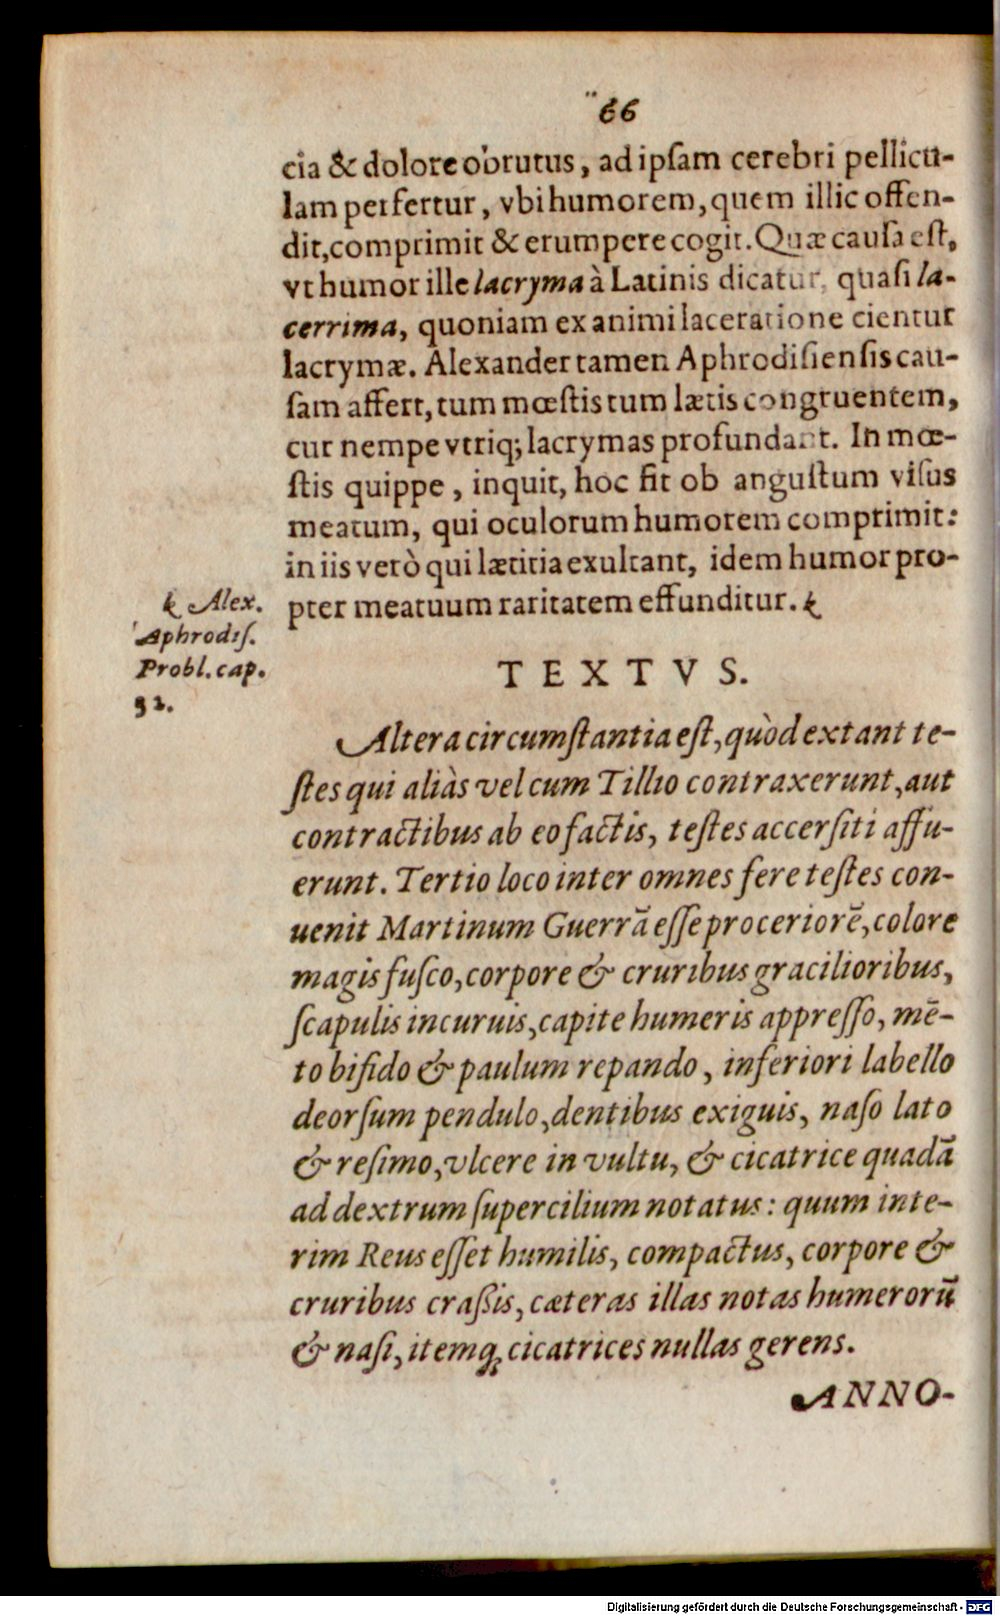 66
cia & dolore obrutus, ad ipſam cerebri pellicu-
lam perfertur, vbi humorem, quem illic offen-
dit, comprimit & erumpere cogit. Quæ cauſa eſt,
vt humor ille lacryma à Latinis dicatur, quaſi la-
cerrima, quoniam ex animi laceratione cientur
lacrymæ. Alexander tamen Aphrodiſienſis cau-
ſam affert, tum mœſtis tum lætis congruentem,
cur nempe vtriq; lacrymas profundant. In mœ-
ſtis quippe, inquit, hoc fit ob anguſtum viſus
meatum, qui oculorum humorem comprimit:
in iis verò qui lætitia exultant, idem humor pro-
pter meatuum raritatem effunditur. k
k Alex.
Aphrodiſ.
Probl. cap.
32.
TEXTVS.
Altera circumſtantia eſt, quòd extant te-
ſtes qui aliàs vel cum Tillio contraxerunt, aut
contractibus ab eo factis, teſtes accerſiti affu-
erunt. Tertio loco inter omnes fere teſtes con-
uenit Martinum Guerrā eſſe proceriorē, colore
magis fuſco, corpore & cruribus gracilioribus,
ſcapulis incuruis, capite humeris appreſſo, mē-
to bifido & paulum repando, inferiori labello
deorſum pendulo, dentibus exiguis, naſo lato
& reſimo, vlcere in vultu, & cicatrice quadā
ad dextrum ſupercilium notatus: quum inte-
rim Reus eſſet humilis, compactus, corpore &
cruribus craſſis, cæteras illas notas humerorū
& naſi, itemq; cicatrices nullas gerens.
ANNO-
Digitalisierung gefördert durch die Deutsche Forschungsgemeinschaft - DFG